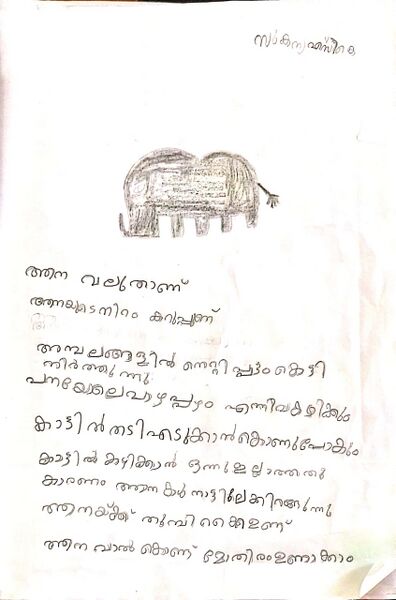 ആന വലുതാണ്
ആനയുടെ നിറം കറുപ്പാണ്
അമ്പലങ്ങളിൽ നെറ്റിപ്പട്ടം കെട്ടി
നിർത്തുന്നു
പനയോല പഴപ്പഴം എന്നിവ കഴിക്കും
കാട്ടിൽ തടി എടുക്കാൻ കൊണുപോകും
കാട്ടിൽ കഴിക്കാൻ ഒന്നുഇല്ലാത്തതു
കാരണം ആനകൾ നാട്ടിലേക്കിറങ്ങുന്നു
ആനയ്ക്ക് തുമ്പികൈഉണ്
ആന വാൽ കൊണ് മോതിരംഉണാക്കാം